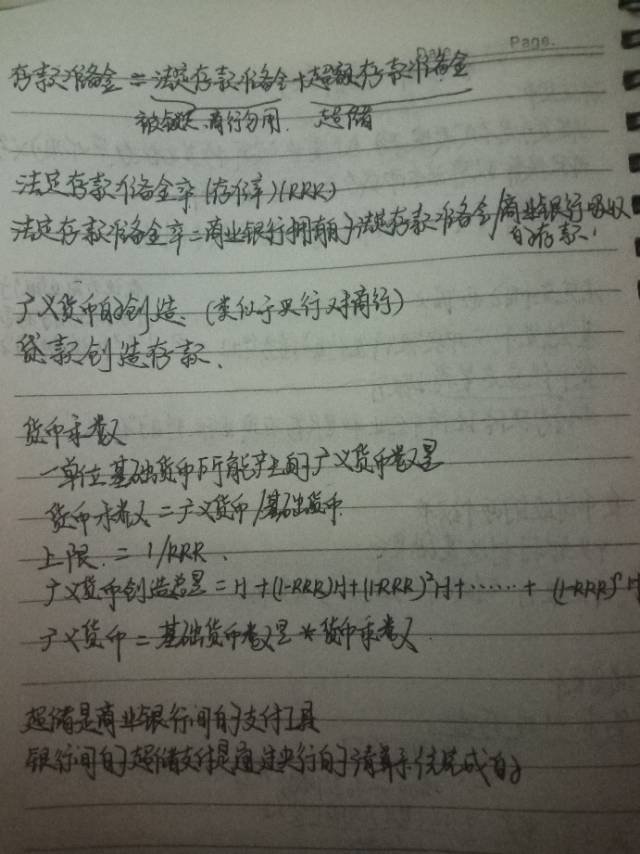 Page.
存款准备金 = 法定存款准备金 + 超额存款准备金
被锁定、商行勿用. 超储
法定存款准备金率 (存准率) (RRR)
法定存款准备金率 = 商业银行拥有的法定存款准备金/商业银行吸收
的存款.
广义货币的创造. (类似于央行对商行)
贷款创造存款.
货币乘数
一单位基础货币所能产生的广义货币数量
货币乘数 = 广义货币/基础货币.
上限 = 1/RRR.
广义货币创造总量 = H + (1-RRR)H + (1-RRR)²H + ...... + (1-RRR) H
广义货币 = 基础货币数量 * 货币乘数
超储是商业银行间的支付工具
银行间的超储支付是通过央行的清算系统完成的